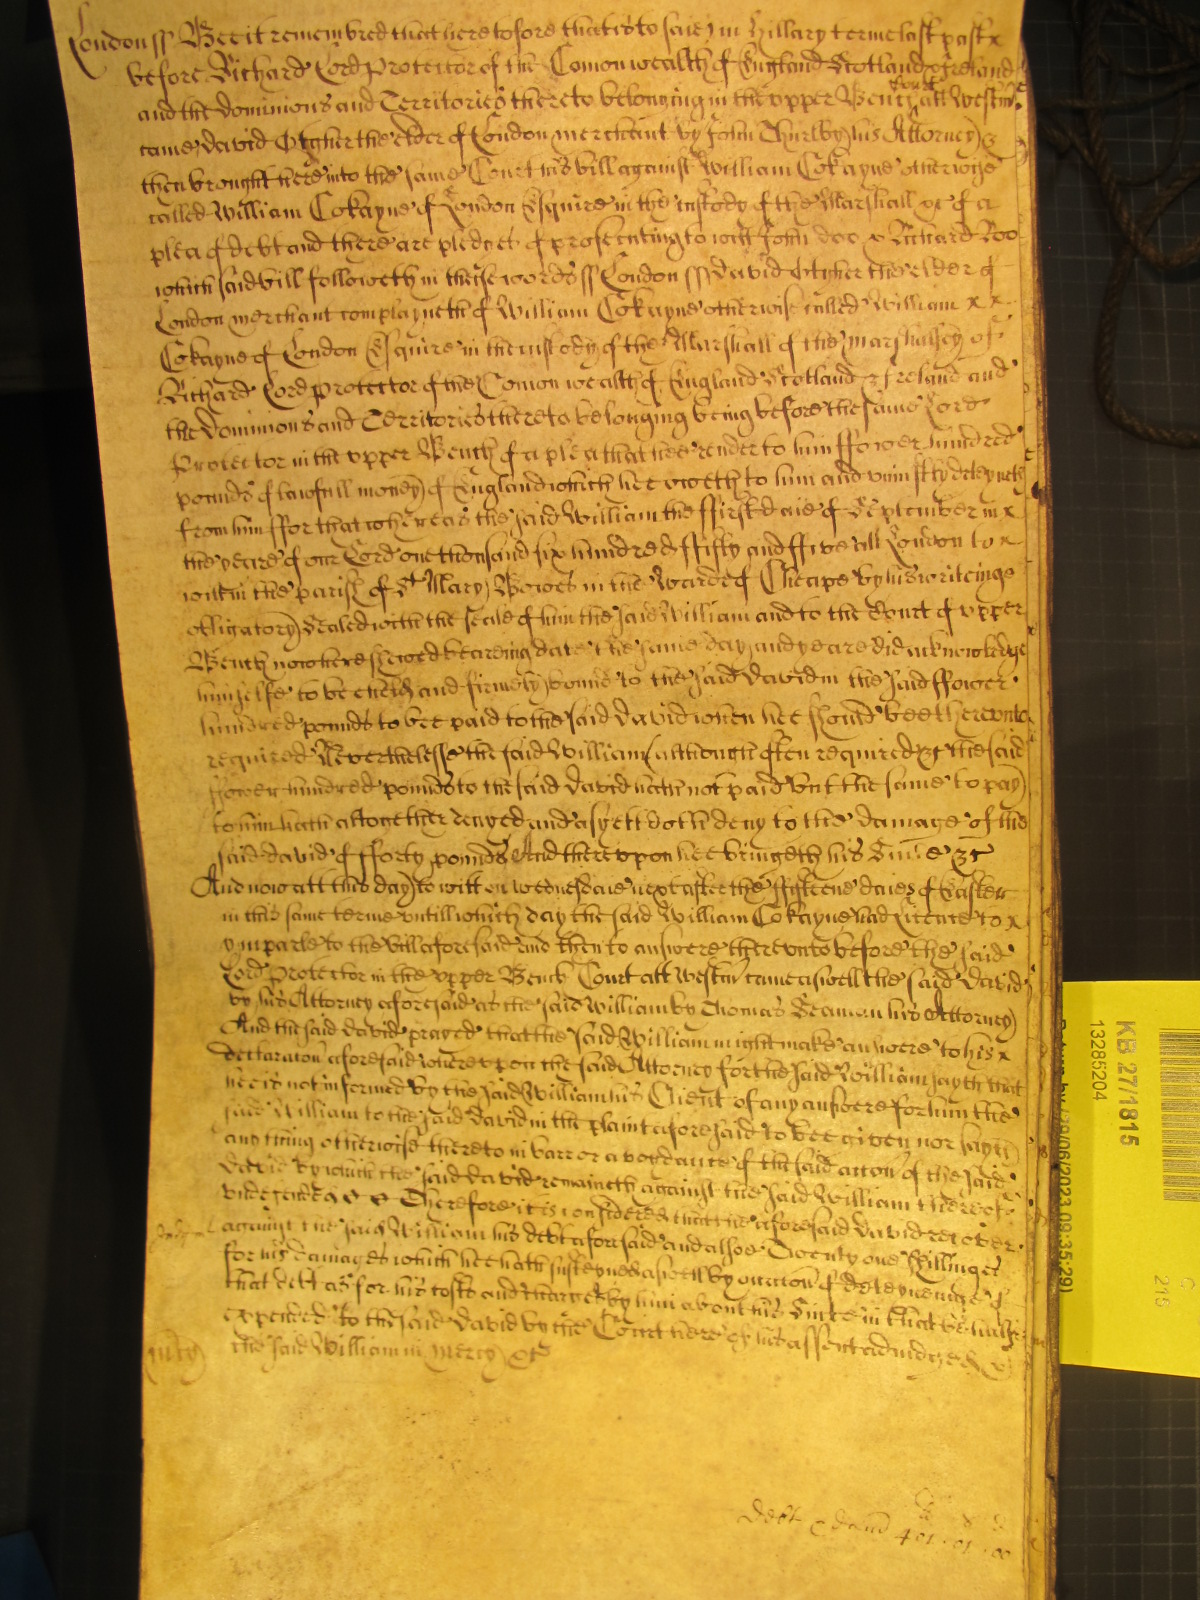 London ss Bee it remembred that heretofore that is to say in Hillary terme last past x
before Richard Lord Protector of the Comonwealth of England Scotland & Ireland
and the dominions and Territories thereto belonging in the upper Bench Court att Westmr
came David Otgher the elder of London merchant by John Thurlby his Attorney &
then brought here into the same Court his bill against William Cokayne otherwise
called William Cokayne of London Esquire in the custody of the Marshall &c of a
plea of debt and there are pledges of prosecuting to witt John doo & Richard Roo
which said bill followeth in theise words ss London ss David Otgher the elder of
London merchant complayneth of William Cokayne otherwise called William x x
Cokayne of London Esquire in the custody of the Marshall of the Marshalsey of
Richard Lord Protector of the Comonwealth of England Scotland & Ireland and
the dominions and Territories thereto belonging being before the same Lord
Protector in the upper Bench of a plea that hee render to him ffower hundred
pounds of lawfull money of England which hee oweth to him and uniustly deteyneth
from him ffor that whereas the said William the ffirst daie of September in x
the yeare of our Lord one thousand six hundred ffifty and ffive att London to x
witt in the parish of St Mary Bowes in the Warde of Cheape by his writeinge
obligatory Sealed with the seale of him the said William and to the Court of upper
Bench now here shewed beareing date the same day and yeare did acknowledge
himselfe to be held and firmely bound to the said David in the said ffower
hundred pounds to bee paid to the said David when hee should bee thereunto
required Neverthelesse the said William (although often required &c) the said
ffower hundred pounds to the said David hath not paid but the same to pay
to him hath altogether denyed and as yett doth deny to the damage of the
said David of fforty pounds And thereupon hee bringeth his Suite &c
And now att this day to witt on wednesdaie next after the ffifteene daies of Easter
in this same terme untill which day the said William Cokayne had licence to x
ymparle to the bill aforesaid and then to answere thereunto before the said
Lord Protector in the upper Bench Court att Westmr came aswell the said David
by his Attorney aforesaid as the said William by Thomas Seaman his Attorney
And the said David prayed that the said William might make answere to his x
declaraton aforesaid whereupon the said Attorney for the said William sayth that
hee is not informed by the said William his Client of any answere for him the
said William to the said David in the plaint aforesaid to bee given nor sayth
any thing otherwise thereto in barr or avoydance of the said accon of the said
David by which the said David remaineth against the said William thereof
undefended &c Therefore it is considered that the aforesaid David recover
against the said William his debt aforesaid and alsoe Twenty one shillings
for his damages which hee hath susteyned aswell by occasion of deteyneinge of
that debt as for his costs and charges by him about his Suite in that behalfe
expended to the said David by the Court here of his assent adiudged &
mercy the said William in mercy &c
Debt & da 401 . 01 . 00
KB 27/1815
13285204
(09/06/2023 08:35:29)
C
215